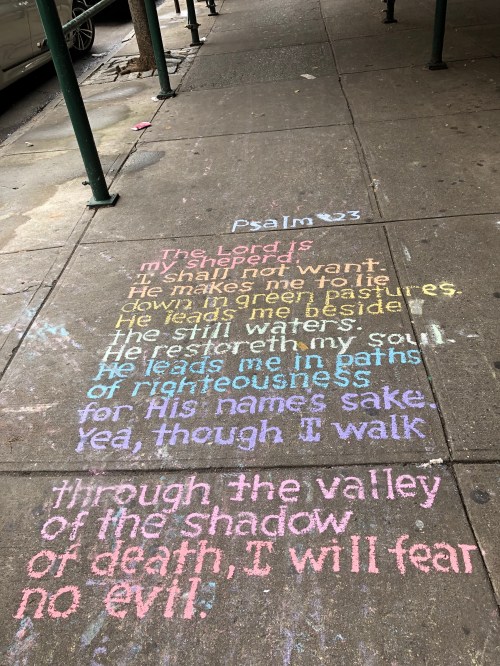 Psalm 23
The Lord is
my sheperd.
I shall not want.
He makes me to lie
down in green pastures.
He leads me beside
the still waters.
He restoreth my soul.
He leads me in paths
of righteousness
for His names sake.
Yea, though I walk
through the valley
of the shadow
of death, I will fear
no evil.